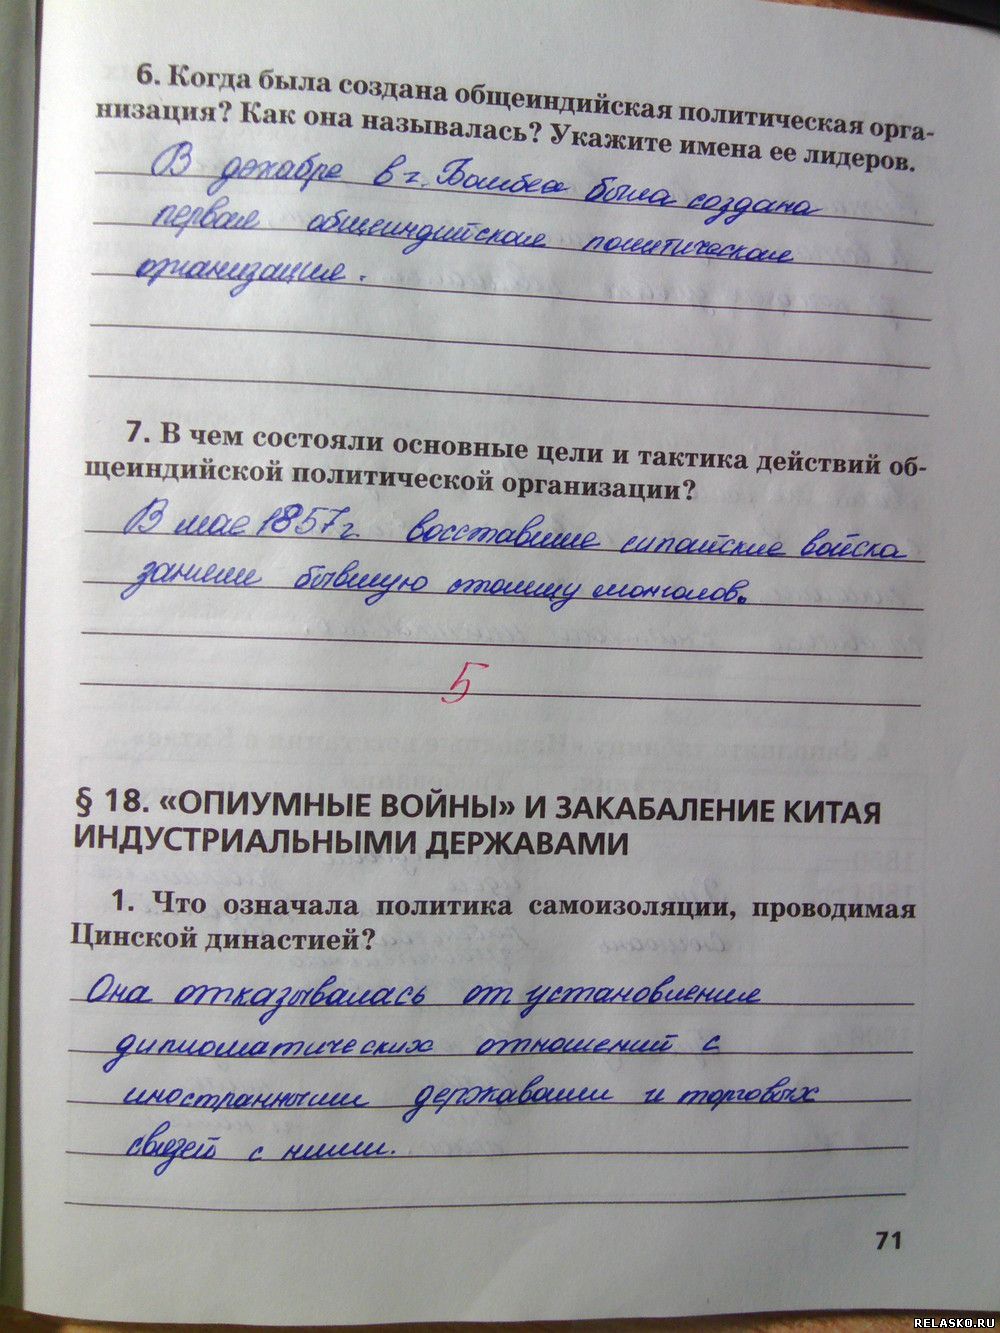 6. Когда была создана общеиндийская политическая орга-
низация? Как она называлась? Укажите имена ее лидеров.
В декабре в г. Бомбее была создана
первая общеиндийская политическая
организация.
7. В чем состояли основные цели и тактика действий об-
щеиндийской политической организации?
В мае 1857 г восставшие сипайские войска
заняли бывшую столицу монголов.
5
§ 18. «ОПИУМНЫЕ ВОЙНЫ» И ЗАКАБАЛЕНИЕ КИТАЯ
ИНДУСТРИАЛЬНЫМИ ДЕРЖАВАМИ
1. Что означала политика самоизоляции, проводимая
Цинской династией?
Она отказывалась от установление
дипломатических отношений с
иностранными державами и торговых
связей с ними.
71
RELASKO.RU